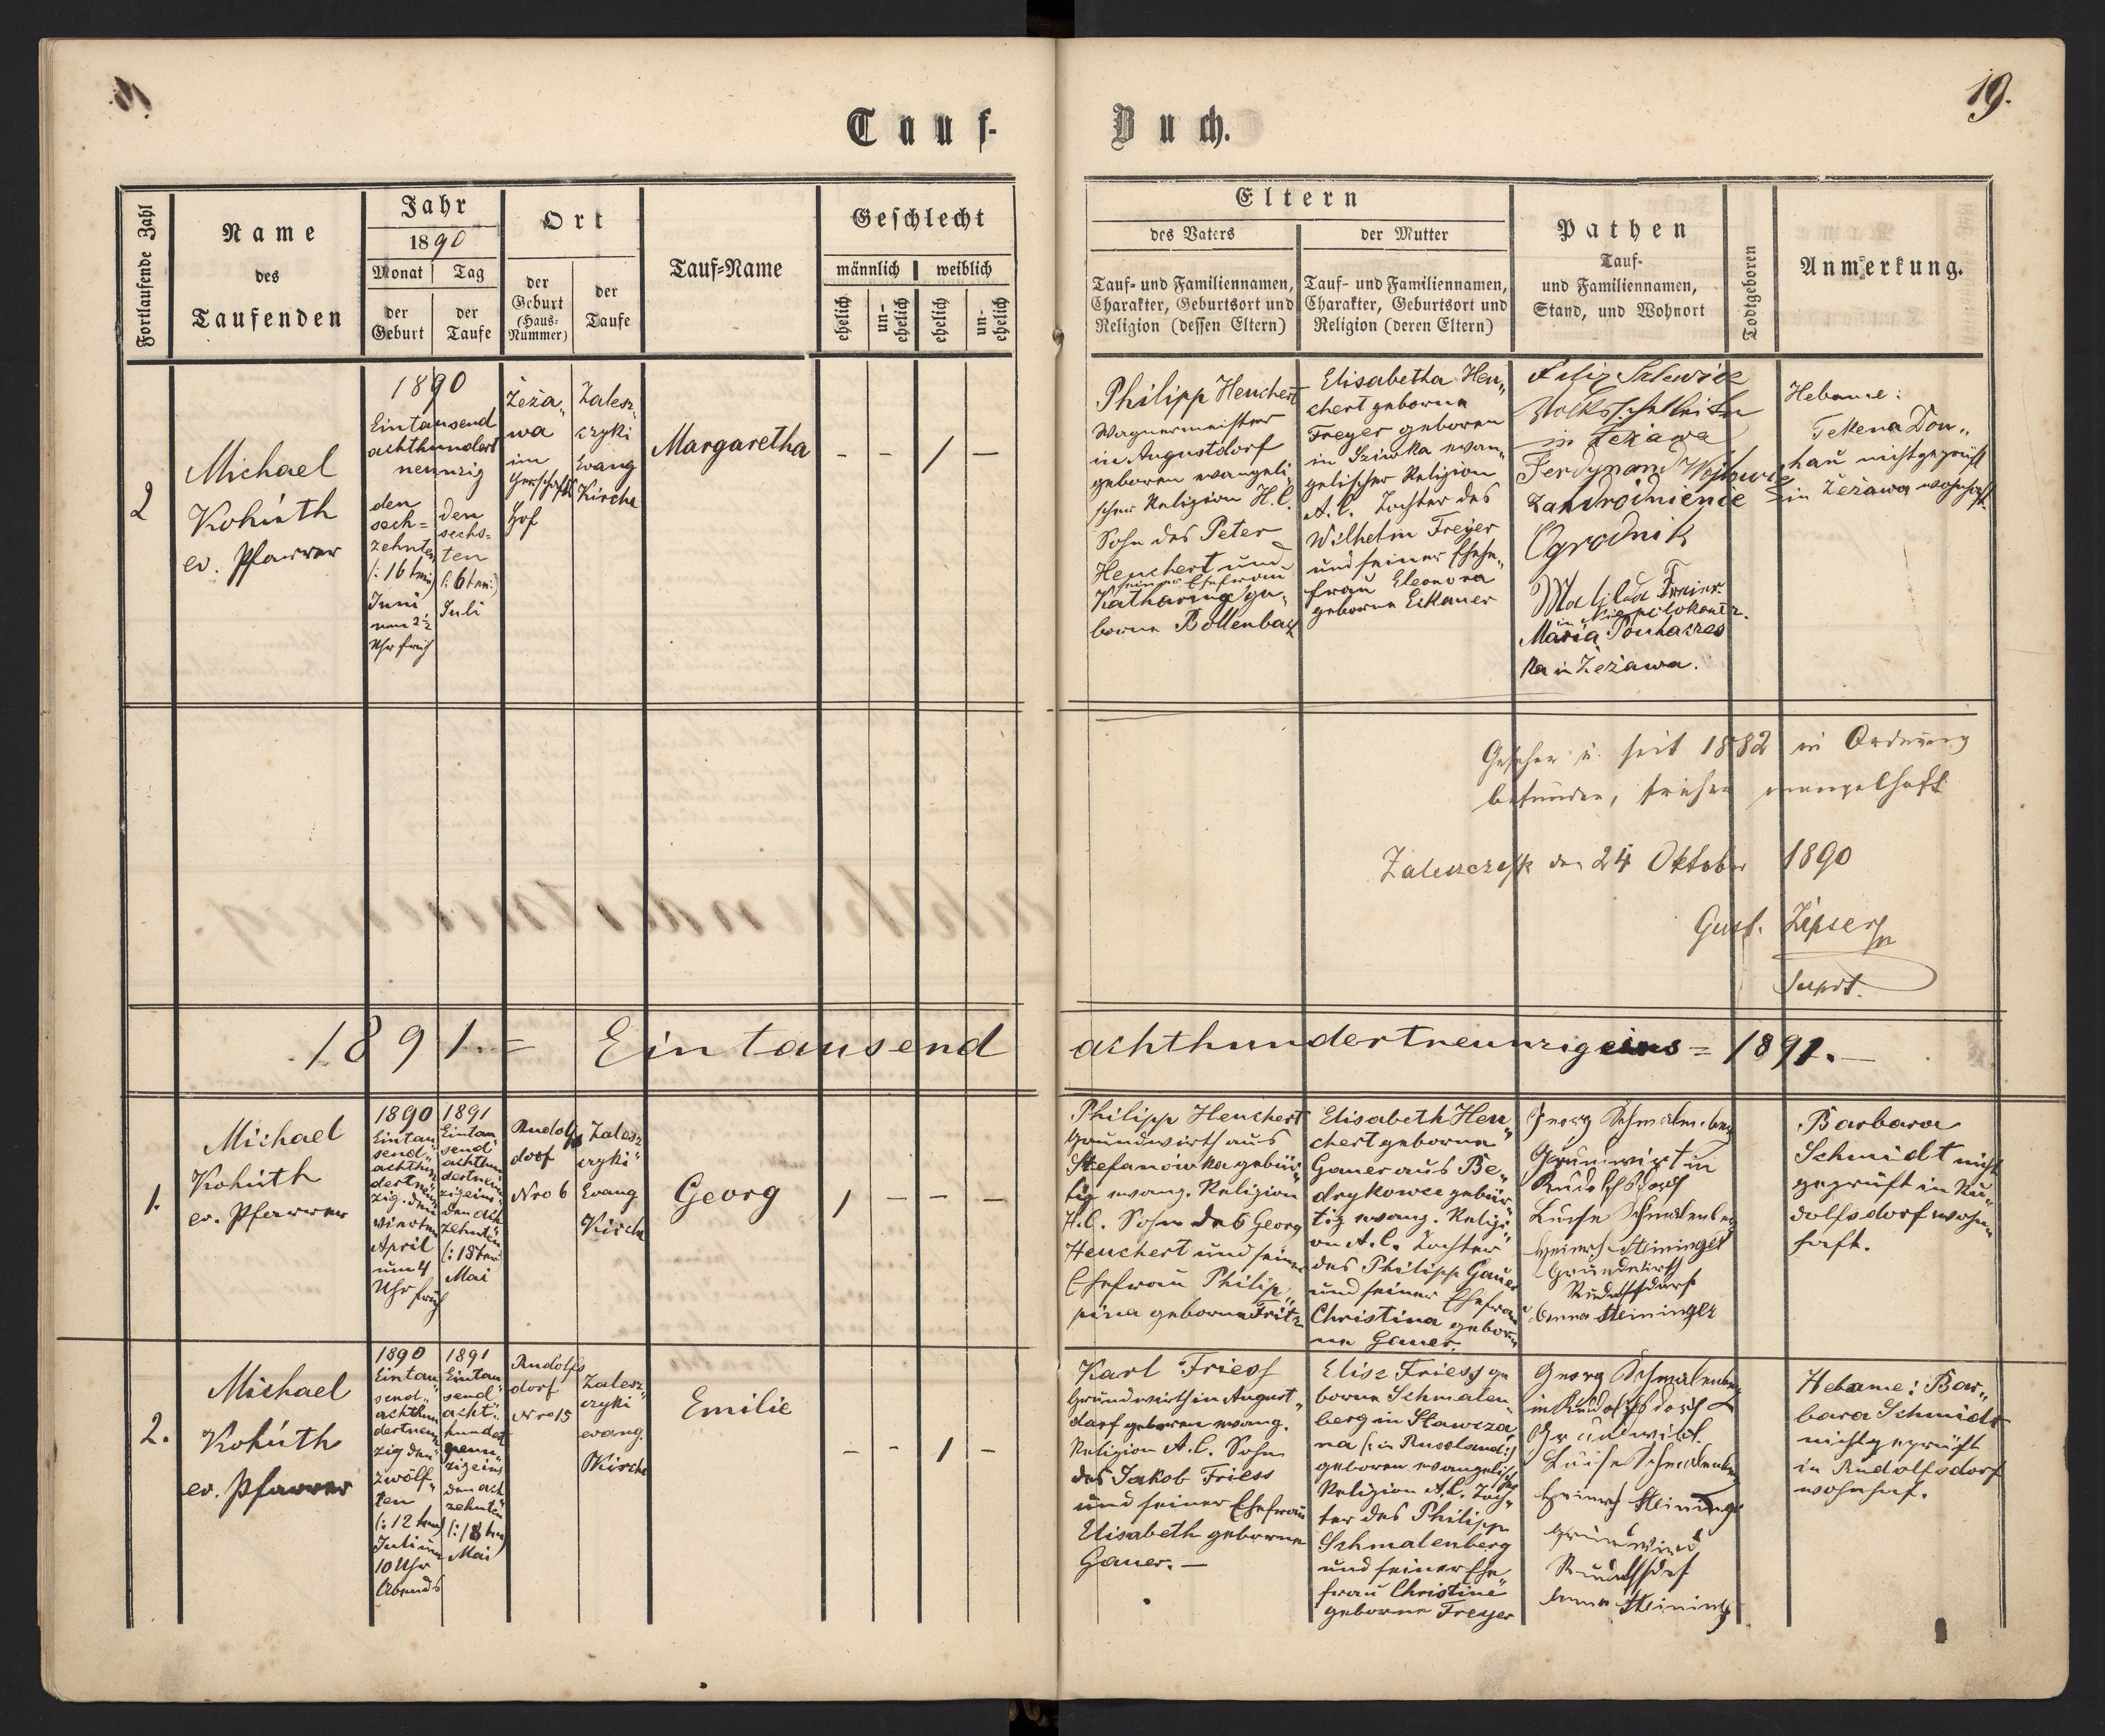 19.
Tauf-
Buch.
Fortlaufende Zahl
Name
des
Taufenden
Jahr
1890
Monat
Tag
der
Geburt
der
Taufe
Ort
der
Geburt
(Haus-
Nummer)
der
Taufe
Tauf-Name
Geschlecht
männlich
weiblich
ehelich
un-
ehelich
ehelich
un-
ehelich
Eltern
des Vaters
der Mutter
Tauf- und Familiennamen,
Charakter, Geburtsort und
Religion (dessen Eltern)
Tauf- und Familiennamen,
Charakter, Geburtsort und
Religion (deren Eltern)
Pathen
Tauf-
und Familiennamen,
Stand, und Wohnort
Todtgeboren
Anmerkung.
2
Michael
Kohúth
ev. Pfarrer
1890
Eintausend
achthundert
neunzig
den
sech=
zehnten
(: 16ten :)
Juni
um 2½
Uhr früh
den
sechs=
ten
(: 6ten :)
Juli
Zeża„
wa
im
Hof
Zalesz„
czyki
Evang
Kirche
Margaretha
- - / —
Philipp Heuchert
Wagnermeister
in Augustdorf
geboren evangeli„
scher Religion H.C.
Sohn des Peter
Heuchert und
seiner Ehefrau
Katharina ge„
borne Bollenbach
Elisabetha Heu„
chert geborne
Freyer geboren
in evan„
gelischer Religion
A.C. Tochter des
Wilhelm Freyer
und seiner Ehe„
frau Eleonora
geborne
in Zeżawa
Ferdynand
Ogrodnik
Maria
ka in Zeżawa.
Hebame:
Tekena Don„
hau nicht geprüft
in Zeżawa wohnhaft
Gesehen u. seit 1882 in Ordnung
befunden, früher mangelhaft
den 24 Oktober 1890
Gust. Zipser
Supdt.
1891. = Eintausend
achthundertneunzigeins = 1891. —
1.
Michael
Kohúth
ev. Pfarrer
1890
Eintau„
send„
achthun„
dertneun„
zig. den
vierten
April
um 4
Uhr früh
1891
Eintau„
send
achthun„
dertneun„
zigeins
den acht„
zehnten
(: 18ten :)
Mai
Rudolfs
dorf
Nro 6
Zalesz„
czyki
Evang
Kirche
Georg
/ — — —
Philipp Heuchert
Grundwirth aus
Stefanówka gebür„
tig evang. Religion
H.C. Sohn des Georg
Heuchert und seiner
Ehefrau Philip„
pina geborne Fritz
Elisabeth Heu„
chert geborne
Gauer aus Be„
drykowce gebür„
tig evang. Religi„
on A.C. Tochter
des Philipp Gauer
und seiner Ehefrau
Christina gebor„
ne Gauer.
Georg Schmalenberg
Grundwirt in
Rudolfsdorf
Luise Schmalenberg
Heinrich Steininger
Grundwirth
Rudolfsdorf
Anna Steininger
Barbara
Schmidt nicht
geprüft in Ru„
dolfsdorf wohn„
haft.
2.
Michael
Kohúth
ev. Pfarrer
1890
Eintau„
send„
achthun„
dertneun„
zig den
zwölf„
ten
(: 12ten :)
Juli um
10 Uhr
Abends
1891
Eintau„
send
acht„
hundert
neun„
zigeins
den acht
zehnten
(: 18ten :)
Mai
Rudolfs
dorf
Nro 15
Zalesz„
czyki
evang.
Kirche
Emilie
— — / —
Karl Friess
Grundwirth in August„
dorf geboren evang.
Religion A.C. Sohn
des Jakob Friess
und seiner Ehefrau
Elisabeth geborne
Gauer. —
Elise Friess ge
borne Schmalen„
berg in Stawcza„
na (: in Russland :)
geboren evangelischer
Religion A.C. Toch„
ter des Philipp
Schmalenberg
und seiner Ehe„
frau Christine
geborne Freyer
Georg Schmalenberg
in Rudolfsdorf
Grundwirt.
Luise Schmalenberg
Heinrich Steininger
Grundwird
Rudolfsdorf
Anna Steininger
Hebame: Bar„
bara Schmidt
nicht geprüft
in Rudolfsdorf
wohnhaft.